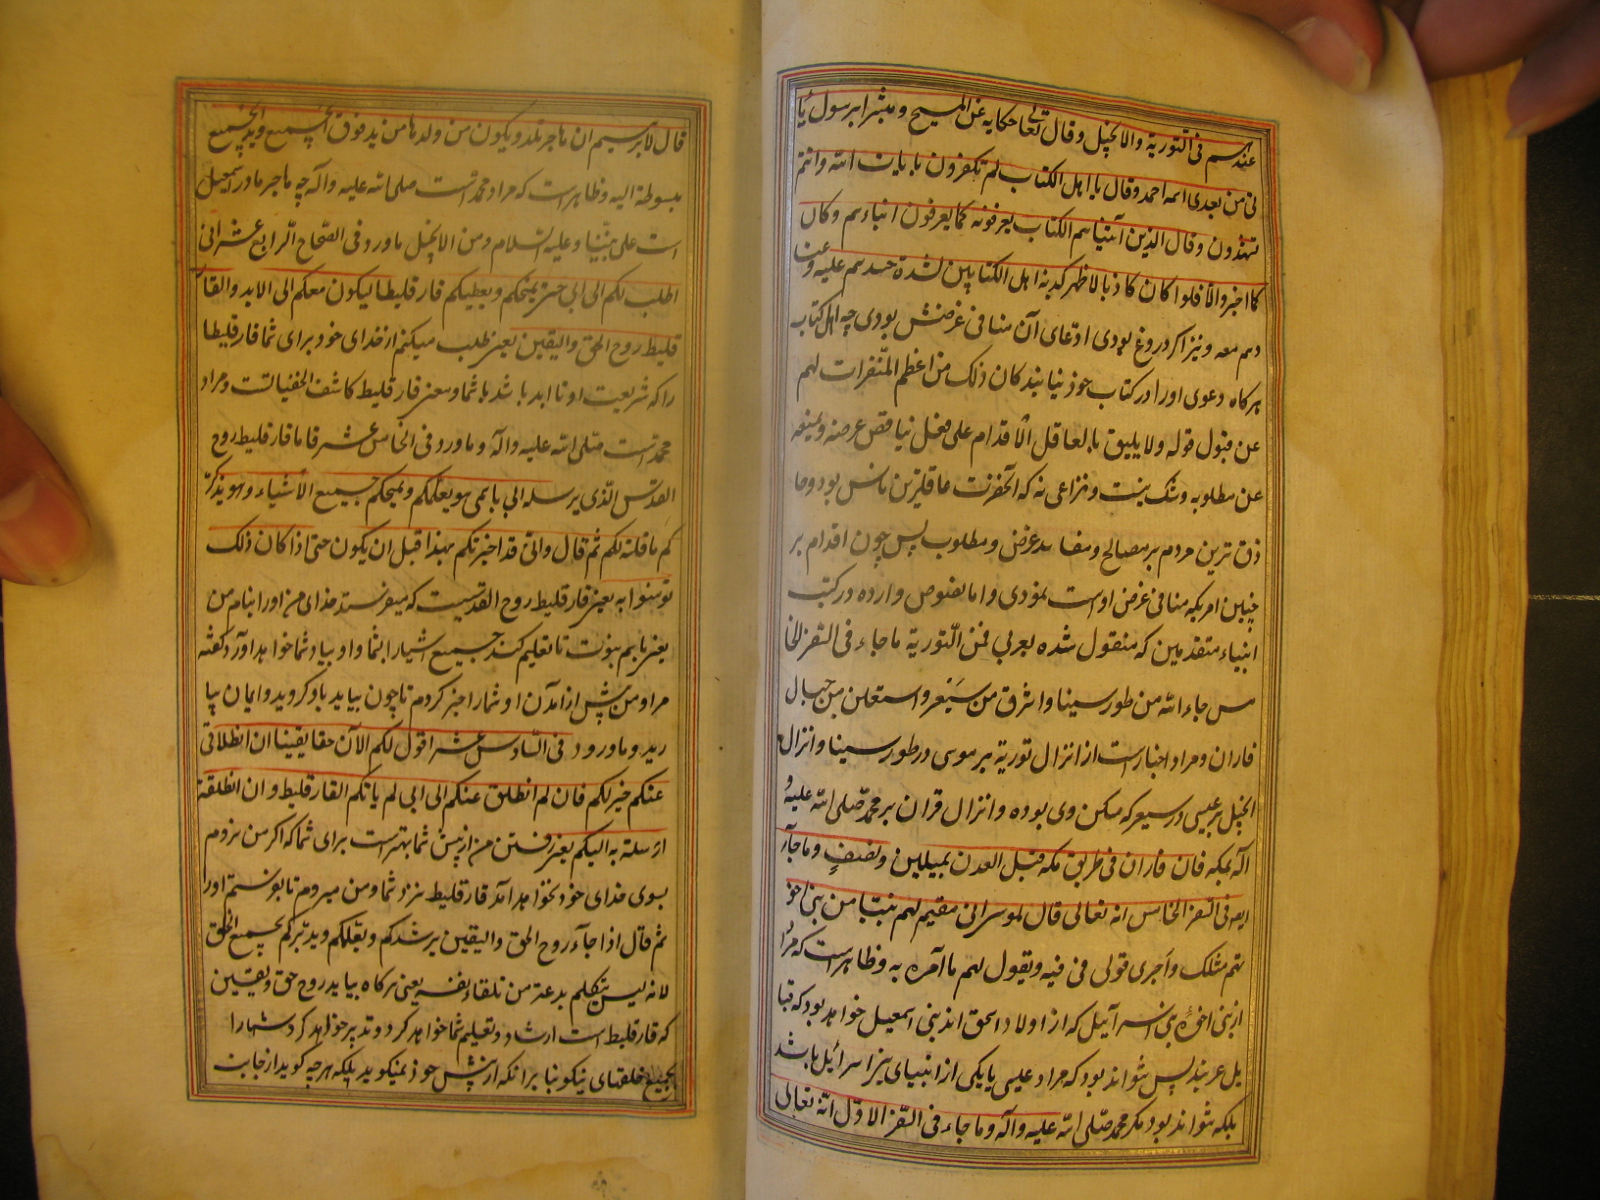 عندهم فی التوریة والانجیل وقال تعالی حکایه عن المسیح ومبشرا برسول یا
تی من بعدی اسمه احمد وقال یا اهل الکتاب لم تکفرون بایات الله وانتم
تشهدون وقال الذین آتیناهم الکتاب یعرفونه کما یعرفون ابناءهم وکان
کما اخبر والا فلو کان کاذبا لاظهر کذبه اهل الکتابین لشدة حسدهم علیه وعنا
دهم معه ونیز اکر دروغ بودی ادعای آن منافی غرضش بودی چه اهل کتاب
هرکاه دعوی اورا در کتاب خود نیابند کان ذلک من اعظم المنفرات لهم
عن قبول قوله ولا یلیق بالعاقل الاقدام علی فعل یناقض غرضه ویمنعه
عن مطلوبه وشک نیست ونزاعی نه که آنحضرت عاقلترین ناس بود وحا
ذق ترین مردم بر مصالح ومفاسد غرض ومطلوب پس چون اقدام بر
چنین امریکه منافی غرض اوست نمودی واما نصوص وارده در کتب
انبیاء متقدمین که منقول شده بعربی فمن التوریة ما جاء فی السفر الخا
مس جاء الله من طور سینا واشرق من سیعیر واستعلن من جبال
فاران ومراد اخبارست از انزال توریة بر موسی در طور سینا وانزال
انجیل بر عیسی در سیعیر که مسکن وی بوده وانزال قران بر محمد صلی الله علیه و
آله بمکه فان فاران فی طریق مکه قبل العدن بمیلین ونصف وما جاء
ایضا فی السفر الخامس انه تعالی قال لموسی انی مقیم لهم نبیا من بنی اخو
تهم مثلک واجری قولی فی فیه ویقول لهم ما آمره به وظاهرست که مراد
از بنی اخوة بنی اسرائیل که از اولاد اسحق اند بنی اسمعیل خواهد بود که قبا
یل عربند پس نتواند بود که مراد عیسی یا یکی از انبیای بنی اسرائیل باشد
بلکه نتواند بود مکر محمد صلی الله علیه وآله وما جاء فی السفر الاول انه تعالی
قال لابرهیم ان هاجر تلد ویکون من ولدها من یده فوق الجمیع وید الجمیع
مبسوطة الیه وظاهرست که مراد محمدست صلی الله علیه وآله چه هاجر مادر اسمعیل
است علی نبینا وعلیه السلام ومن الانجیل ما ورد فی الصحاح الرابع عشر انی
اطلب لکم الی ابی حتی یمنحکم ویعطیکم فارقلیطا لیکون معکم الی الابد والفار
قلیط روح الحق والیقین یعنی طلب میکنم از خدای خود برای شما فارقلیطا
را که شریعت او تا ابد باشد با شما ومعنی فارقلیط کاشف الخفیاتست ومراد
محمدست صلی الله علیه وآله وما ورد فی الخامس عشر فاما فارقلیط روح
القدس الذی یرسله ابی باسمی هو یعلمکم ویمنحکم جمیع الاشیاء وهو یذکر
کم ما قلته لکم ثم قال وانی قد اخبرتکم بهذا قبل ان یکون حتی اذا کان ذلک
تومنوا به یعنی فارقلیط روح القدسیست که میفرستد خدای من اورا بنام من
یعنی باسم نبوت تا تعلیم کند جمیع اشیارا بشما واو بیاد شما خواهد آورد کفته
مرا ومن پیش از آمدن او شمارا خبر کردم تا چون بیاید باو کروید وایمان بیا
رید وما ورد فی السادس عشر اقول لکم الآن حقا یقینا ان انطلاقی
عنکم خیر لکم فان لم انطلق عنکم الی ابی لم یاتکم الفارقلیط وان انطلقت
ارسلته به الیکم یعنی رفتن من از پیش شما بهترست برای شما که اکر من نروم
بسوی خدای خود نخواهد آمد فارقلیط نزد شما ومن میروم تا بفرستم اورا
ثم قال اذا جاء روح الحق والیقین یرشدکم ویعلمکم ویدبرکم بجمیع الخلق
لانه لیس یتکلم بدعة من تلقاء نفسه یعنی هرکاه بیاید روح حق ویقین
که فارقلیط است ارشاد وتعلیم شما خواهد کرد وتدبیر خواهد کرد شمارا
بجمیع خلقتهای نیکو بنا برانکه از پیش خود نمیکوید بلکه هر چه کوید از جانب